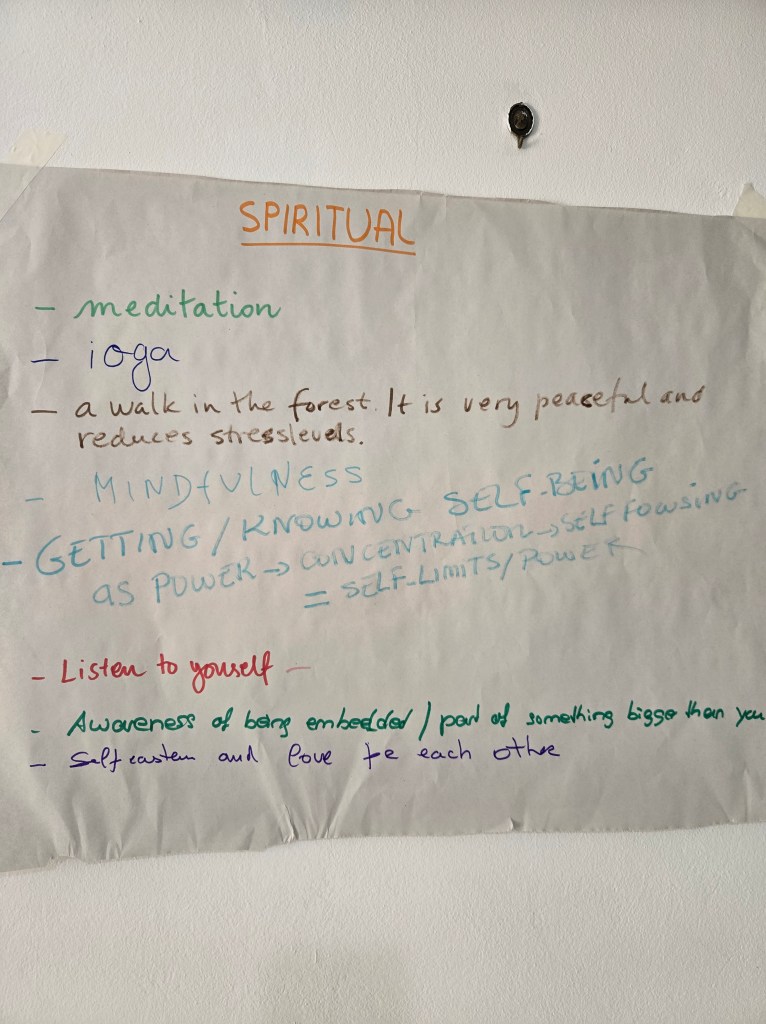 SPIRITUAL
- meditation
- ioga
- a walk in the forest. It is very peaceful and
reduces stresslevels.
- MINDfULNESS
- GETTING/KNOWING SELF-BEiNG
aS POWER → CONCENTRATION → SELF FOCUSING
= SELF-LIMITS/POWER
- Listen to yourself -
- Awareness of being embedded / part of something bigger than you
- Self eastem and love fe each other